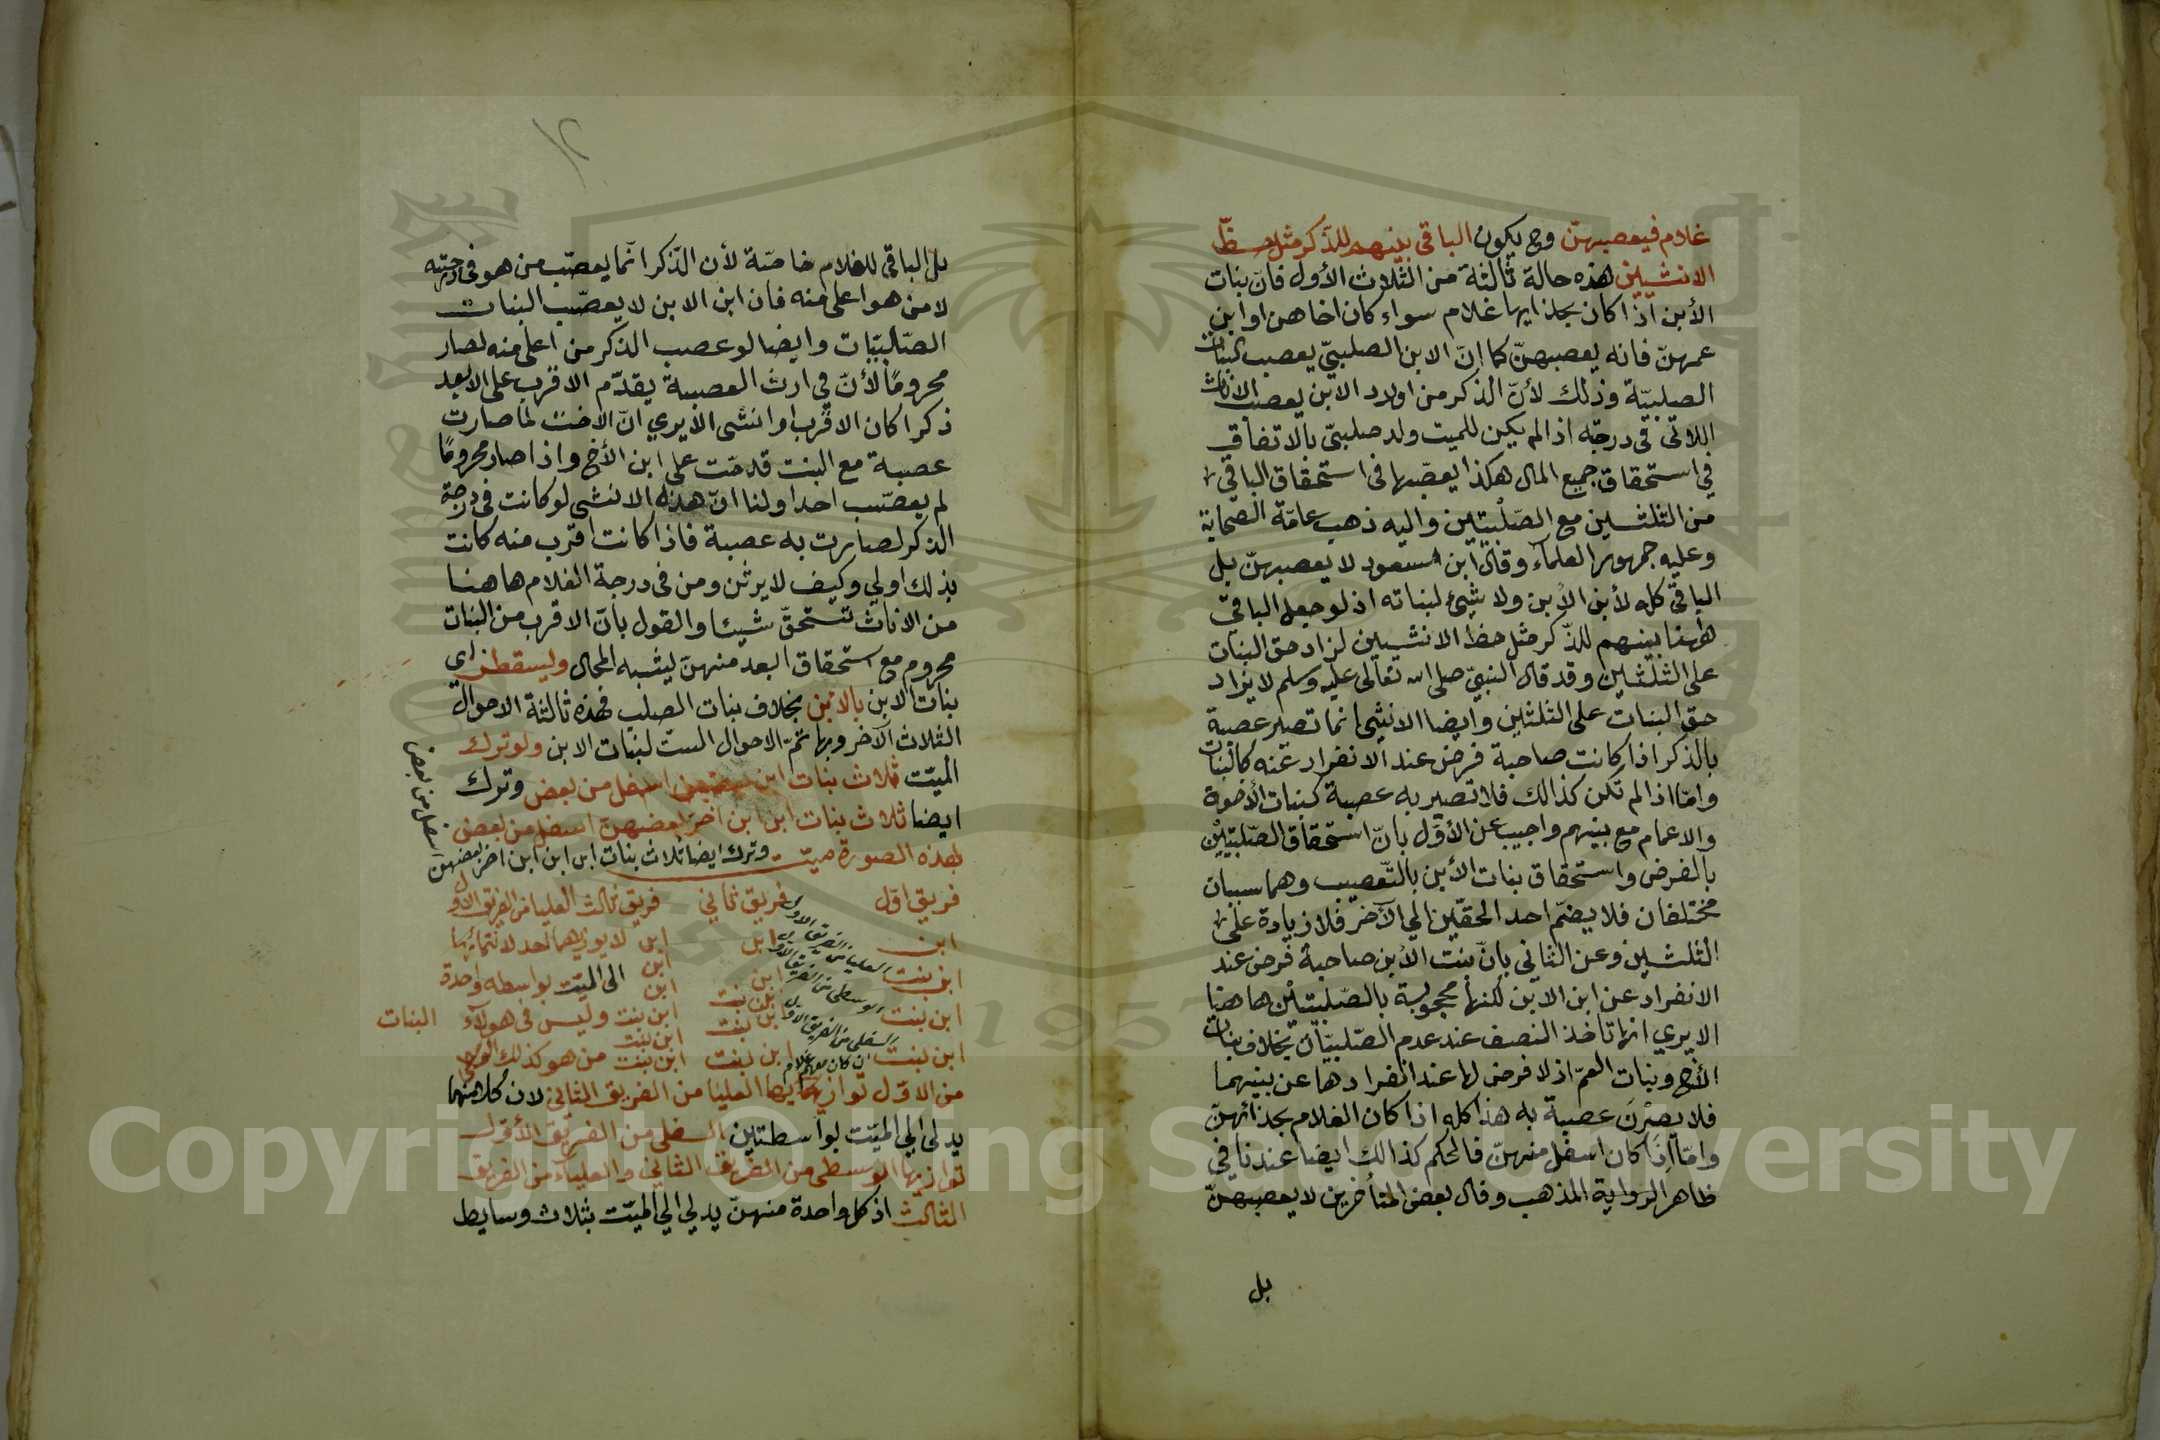 غلام فيعصبهنّ وح يكون الباقى بينهم للذكر مثل حظّ
الانثيين لهذه حالة ثالثة من الثلاث الأول فانّ بنات
الأبن اذا كان بحذايها غلام سواء كان اخاهن او ابن
عمهنّ فانه يعصبهنّ كما انّ الابن الصلبيّ يعصب البنات
الصلبيّة وذلك لأنّ الذكر من اولاد الابن يعصب الاناث
اللاتى فى درجته اذا لم يكن للميت ولد صلبيّ بالاتفاق
في استحقاق جميع المال هكذا يعصّبها فى استحقاق الباقى
من الثلثين مع الصّلبيّتين واليه ذهب عامّة الصحابة
وعليه جمهور العلماء وقال ابن مسعود لا يعصبهنّ بل
الباقى كله لأبن الأبن ولا شيئ لبناته اذ لو جعل الباقى
هاهنا بينهم للذّكر مثل حظ الانثيين لزاد حق البنات
على الثلثين وقد قال النبيّ صلى الله تعالى عليه وسلم لا يزاد
حق البنات على الثلثين وايضا الانثى انما تصير عصبة
بالذكر اذا كانت صاحبة فرض عند الانفراد عنه كالبنات
وامّا اذا لم تكن كذالك فلا تصير به عصبة كبنات الأخوة
والاعمام مع بنيهم واجيب عن الأوّل بانّ استحقاق الصّلبيّتين
بالفرض واستحقاق بنات الأبن بالتّعصيب وهما سببان
مختلفان فلا يضمّ احد الحقّين الي الآخر فلا زيادة على
الثلثين وعن الثاني بانّ بنت الأبن صاحبة فرض عند
الانفراد عن ابن الابن لكنها محجوبة بالصّلبيتين هاهنا
الا يري انها تاخذ النصف عند عدم الصّلبيّات بخلاف بنات
الأخ وبنات العمّ اذ لا فرض لها عند انفرادها عن بنيهما
فلا يصرن عصبة به هذا كله اذا كان الغلام بحذائهنّ
وامّا اذا كان اسفل منهنّ فالحكم كذالك ايضا عندنا في
ظاهر الرواية المذهب وقال بعض المتأخرين لا يعصبهنّ
بل
بل الباقى للغلام خاصّة لأن الذّكر انّما يعصّب من هو فى درجته
لا من هو اعلى منه فان ابن الابن لا يعصّب البنات
الصّلبيّات وايضا لو عصب الذكر من اعلى منه لصار
محرومًا لأنّ في ارث العصبة يقدّم الاقرب على الابعد
ذكرا كان الاقرب او انثى الا يري انّ الاخت لما صارت
عصبة مع البنت قدمت على ابن الأخ واذا صار محرومًا
لم يعصّب احدا ولنا انّ هذه الانثى لو كانت فى درجة
الذكر لصارت به عصبة فاذا كانت اقرب منه كانت
بذلك اولي وكيف لا يرثن ومن فى درجة الغلام هاهنا
من الاناث تستحقّ شيئا والقول بانّ الاقرب من البنات
محروم مع استحقاق البعد منهنّ ليشبه المحال ويسقطن اي
بنات الابن بالابن بخلاف بنات الصلب فهذه ثالثة الاحوال
الثلاث الآخر وبها تمّ الاحوال الست لبنات الابن ولو ترك
الميّت ثلاث بنات ابن بعضهنّ اسفل من بعض وترك
ايضا ثلاث بنات ابن ابن اخر بعضهنّ اسفل من بعض
بهذه الصورة ميّت وترك ايضا ثلاث بنات ابن ابن ابن اخر بعضهنّ
اسفل من بعض
فريق اوّل فريق ثاني فريق ثالث العليا من الفريق الاول
ابن ابن ابن لا يوازيها احد لانتمائها
ابن بنت ابن ابن الى الميّت بواسطة واحدة
العليا من الفريق الاول
ابن بنت ابن بنت ابن
الوسطى من الفريق الاول
ابن بنت ابن بنت ابن بنت وليس فى هولاء البنات
السفلى من الفريق الاول
ابن بنت ابن بنت ابن بنت من هو كذلك
ان كان معهم غلام
من الاول توازيها العليا من الفريق الثانى لان كل منهما
يدلى الي الميّت بواسطتين السفلى من الفريق الأول
توازيها الوسطى من الفريق الثاني والعلياء من الفريق
الثالث اذ كل واحدة منهنّ يدلي الي الميّت بثلاث وسايط
Copyright © King Saud University
1957